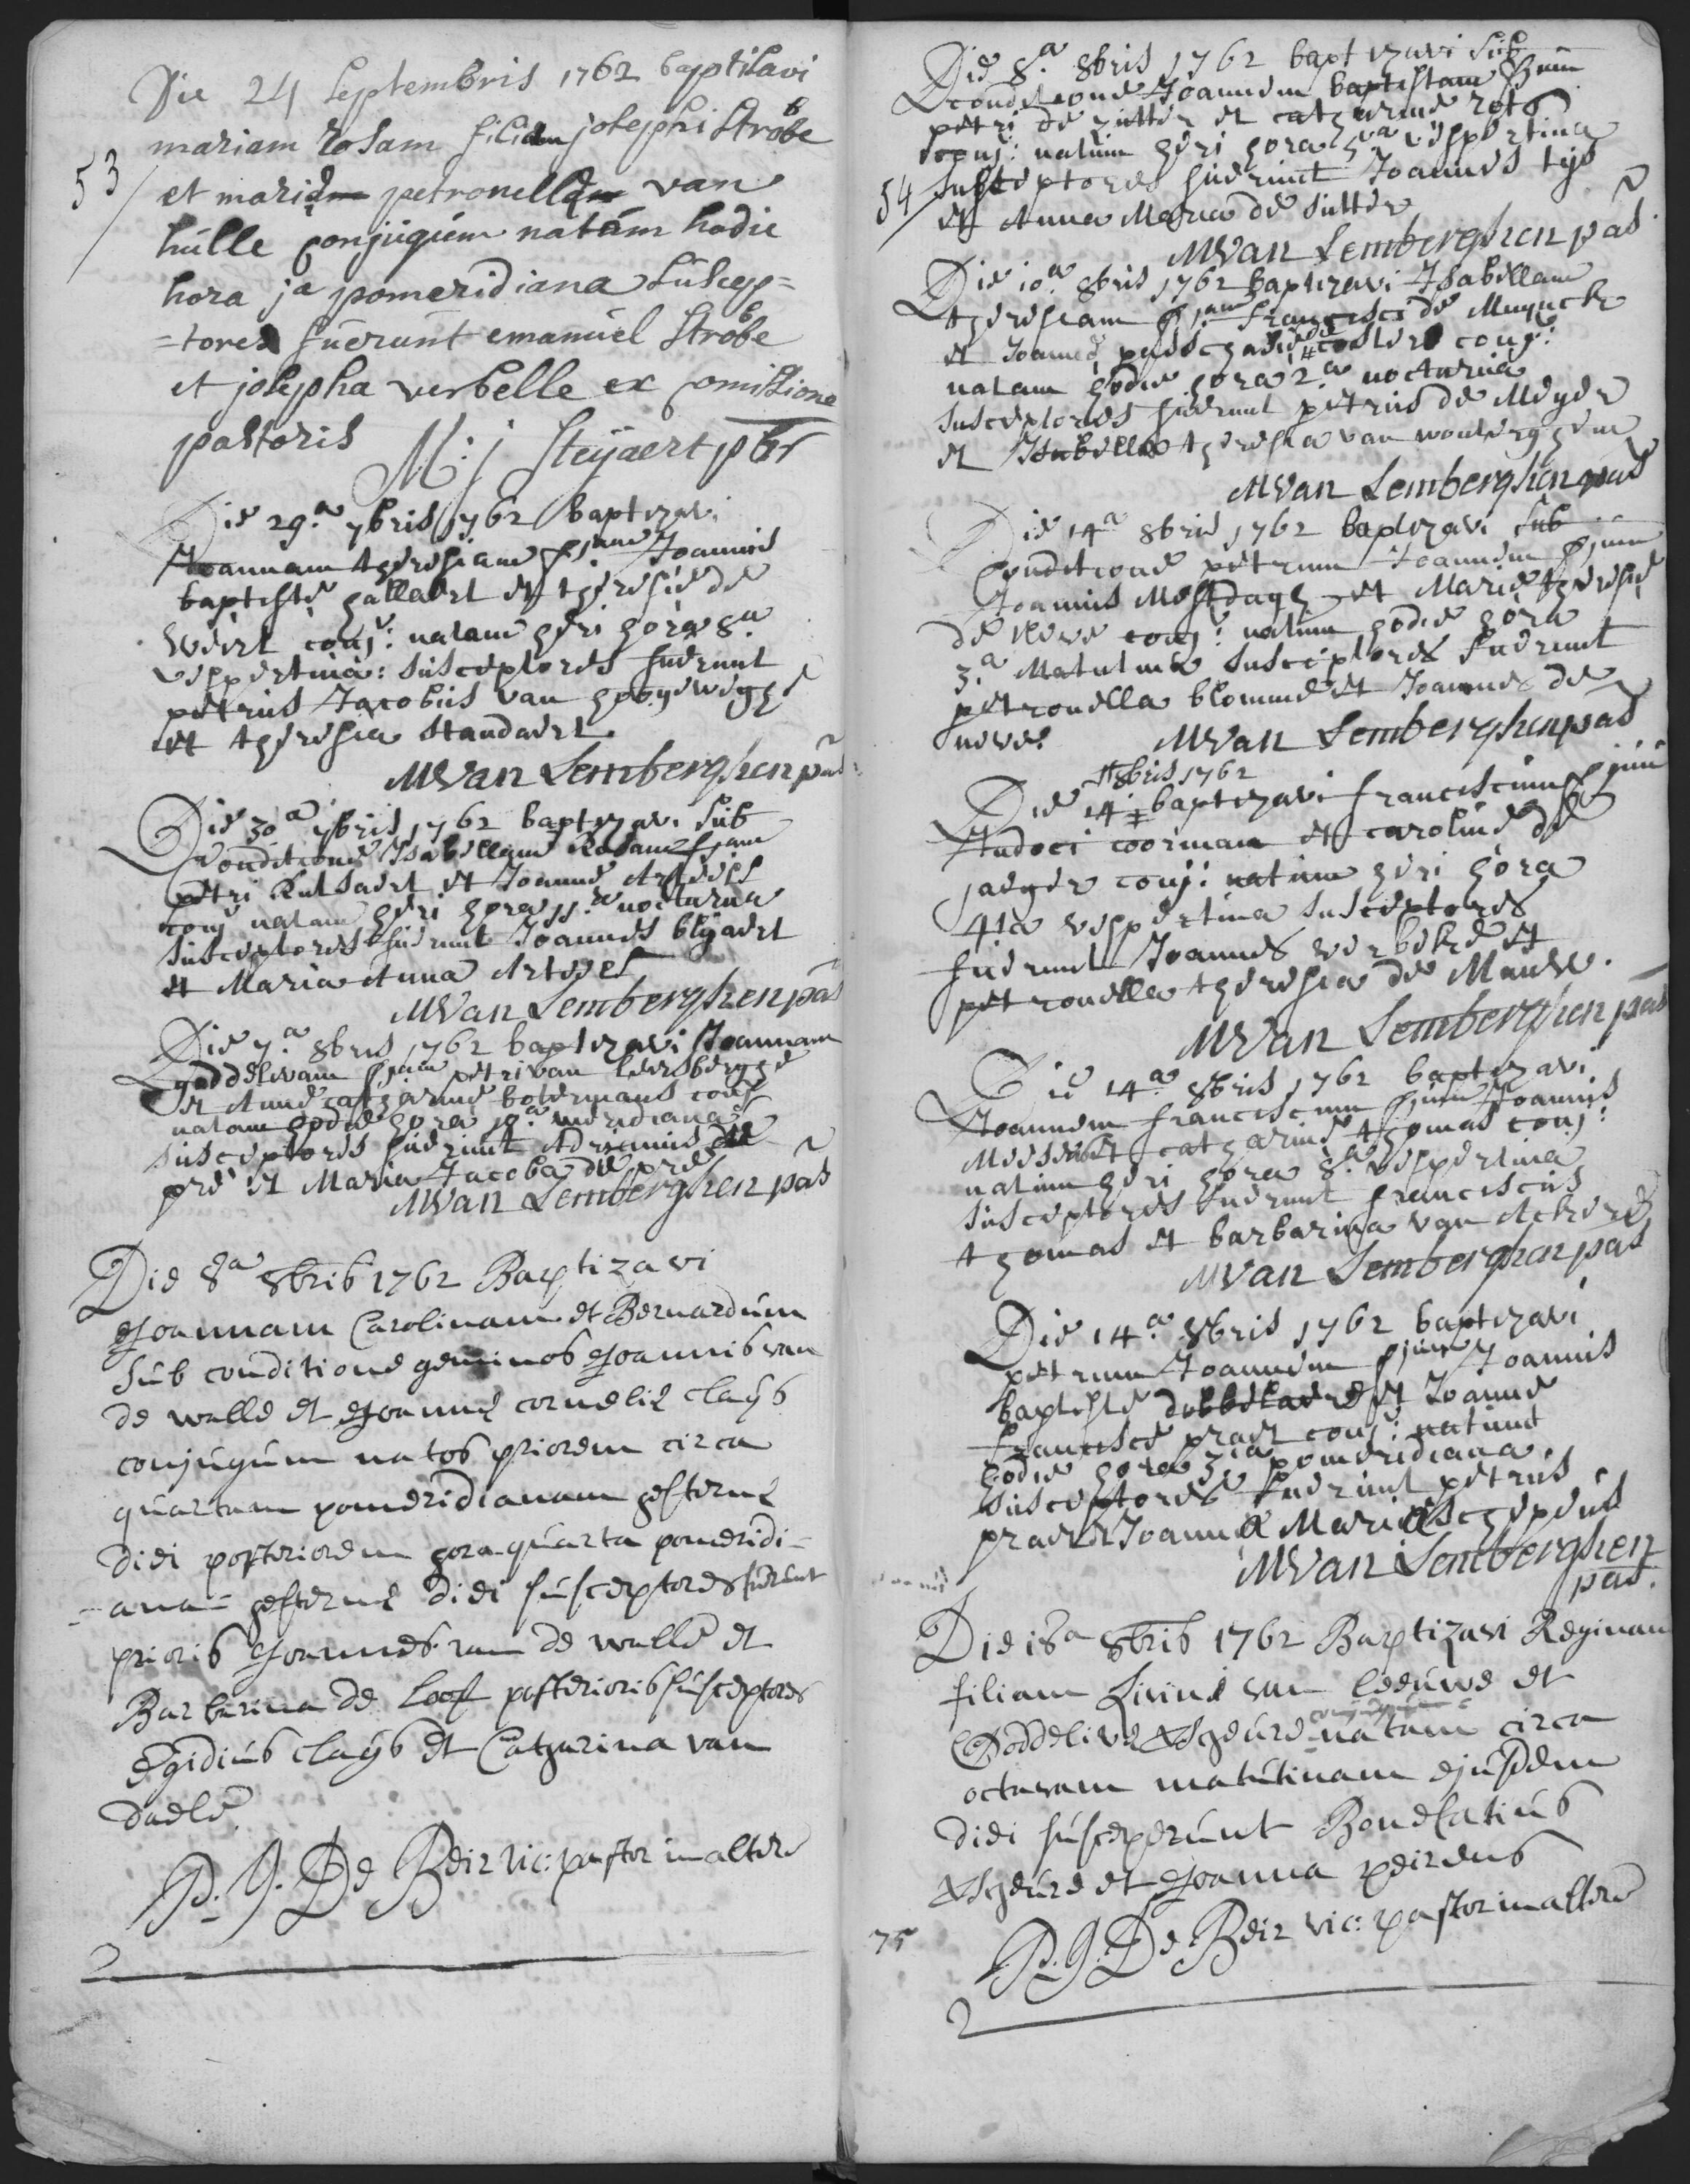 Die 24 Septembris 1762 baptisavi
mariam Rosam filiam josephi Strobbe
53
et mariæ petronellæ van
hulle conjugum natam hodie
hora ja pomeridiana suscep=
=tores fuerunt emanuel Strobbe
et josepha verbelle ex comissione
pastoris M: j Steyaert pbr
Die 29.a 7bris 1762 baptizavi
Joannam theresiam fjam Joannis
baptiste hallaert et theresie de
Weirt conj: natam heri hora 8.a
vespertina: susceptores fuerunt
petrus Jacobus van hooyeweghe
et theresia Standaert
MVan Lemberghen pas
Die 30a 7bris 1762 baptizavi sub
conditione Isabellam Rosam fjam
petri Rutsaert et Joanne
conj natam heri hora 11.a nocturna
susceptores fuerunt Joannes blyaert
et Maria Anna
MVan Lemberghen pas
Die 7.a 8bris 1762 baptizavi Joannam
godelivam fjam petri van Leersberghe
et Anne catharine botermans conj
natam hodie hora 10.a meridiana
susceptores fuerunt Adrianus de
pre et Maria Jacoba de pre
MVan Lemberghen pas
Die 8a 8bris 1762 Baptizavi
Joannam Carolinam et Bernardum
sub conditione geminos Joannis van
de walle et Joannæ corneliæ claijs
conjugum natos priorem circa
quartam pomeridianam hesternæ
diei posteriorem hora quarta pomeridi=
=ana= hesternæ diei susceptores fuerunt
prioris Joannes van de walle et
Barbarina de Loof posterioris susceptores
Egidius claijs et Catharina van
daele
P. J. De Beir vic: pastor in altere
Die 8.a 8bris 1762 baptizavi sub
conditione Joannem baptistam fjum
petri de zutter et catharine
conj: natum heri hora 5.a vespertina
54
susceptores fuerunt Joannes tys
et Anna Maria de Sutter
MVan Lemberghen pas
Die 10.a 8bris 1762 baptizavi Isabellam
theresiam fjam francisci de Muynck
et Joanne de coster conj:
natam hodie hora 2.a nocturna
susceptores fuerunt petrus de Meyer
et Isabella theresia van wonterghem
MVan Lemberghen pas
Die 14a 8bris 1762 baptizavi sub
conditione petrum Joannem fjum
Joannis Mestdagh et Marie theresie
de Neve conj: natum hodie hora
3.a Matutina susceptores fuerunt
petronella blomme et Joannes de
neve
MVan Lemberghen pas
8bris 1762
Die 14 baptizavi franciscum fjum
Judoci coorman et caroline de
jaeger conj: natum heri hora
4ta vespertina susceptores
fuerunt Joannes verbeke et
petronella theresia de Mauw.
MVan Lemberghen pas
Die 14a 8bris 1762 baptizavi
Joannem franciscum fjum Joannis
et catharine thomas conj:
natum heri hora 8.a vespertina
susceptores fuerunt franciscus
thomas et barbarina van Ackere
MVan Lemberghen pas
Die 14.a 8bris 1762 baptizavi
petrum Joannem fjum Joannis
baptiste dobbelaere et Joanne
francisce praet conj: natum
hodie hora 3.ia pomeridiana
susceptores fuerunt petrus
praet et Joanna Maria schepens
MVan Lemberghen
pas.
Die 18a 8bris 1762 Baptizavi Reginam
filiam Livini van Leeuwe et
conjugum
Goddelivæ natam circa
octavam matutinam ejusdem
diei susceperunt Bonefatius
et Joanna peirens
75
P. J. De Beir vic: pastor in altere